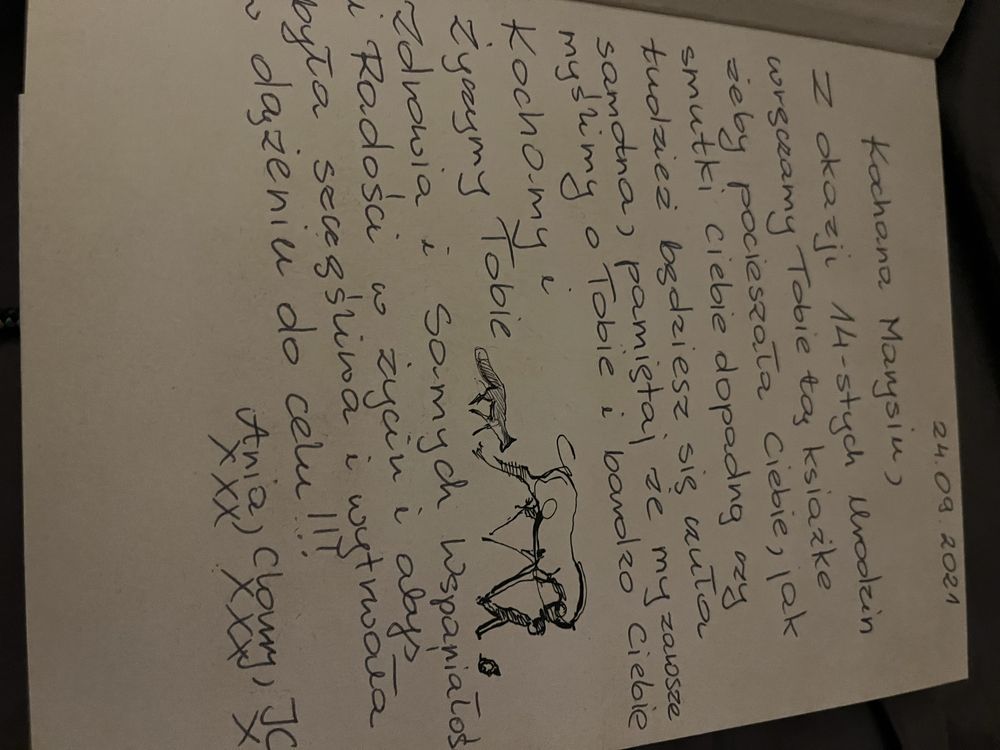 24.09.2021
Kochana Marysiu,
Z okazji 14-stych Urodzin
wręczamy Tobie tą książkę
żeby pocieszała Ciebie, jak
smutki ciebie dopadną czy
tudzież będziesz się czuła
samotna, pamiętaj że my zawsze
myślimy o Tobie i bardzo Ciebie
Kochamy i
życzymy Tobie
Zdrowia i Samych Wspaniałoś
i Radości w życiu i abyś
była szczęśliwa i wytrwała
w dążeniu do celu !!!
Ania,
XXX XXXX X